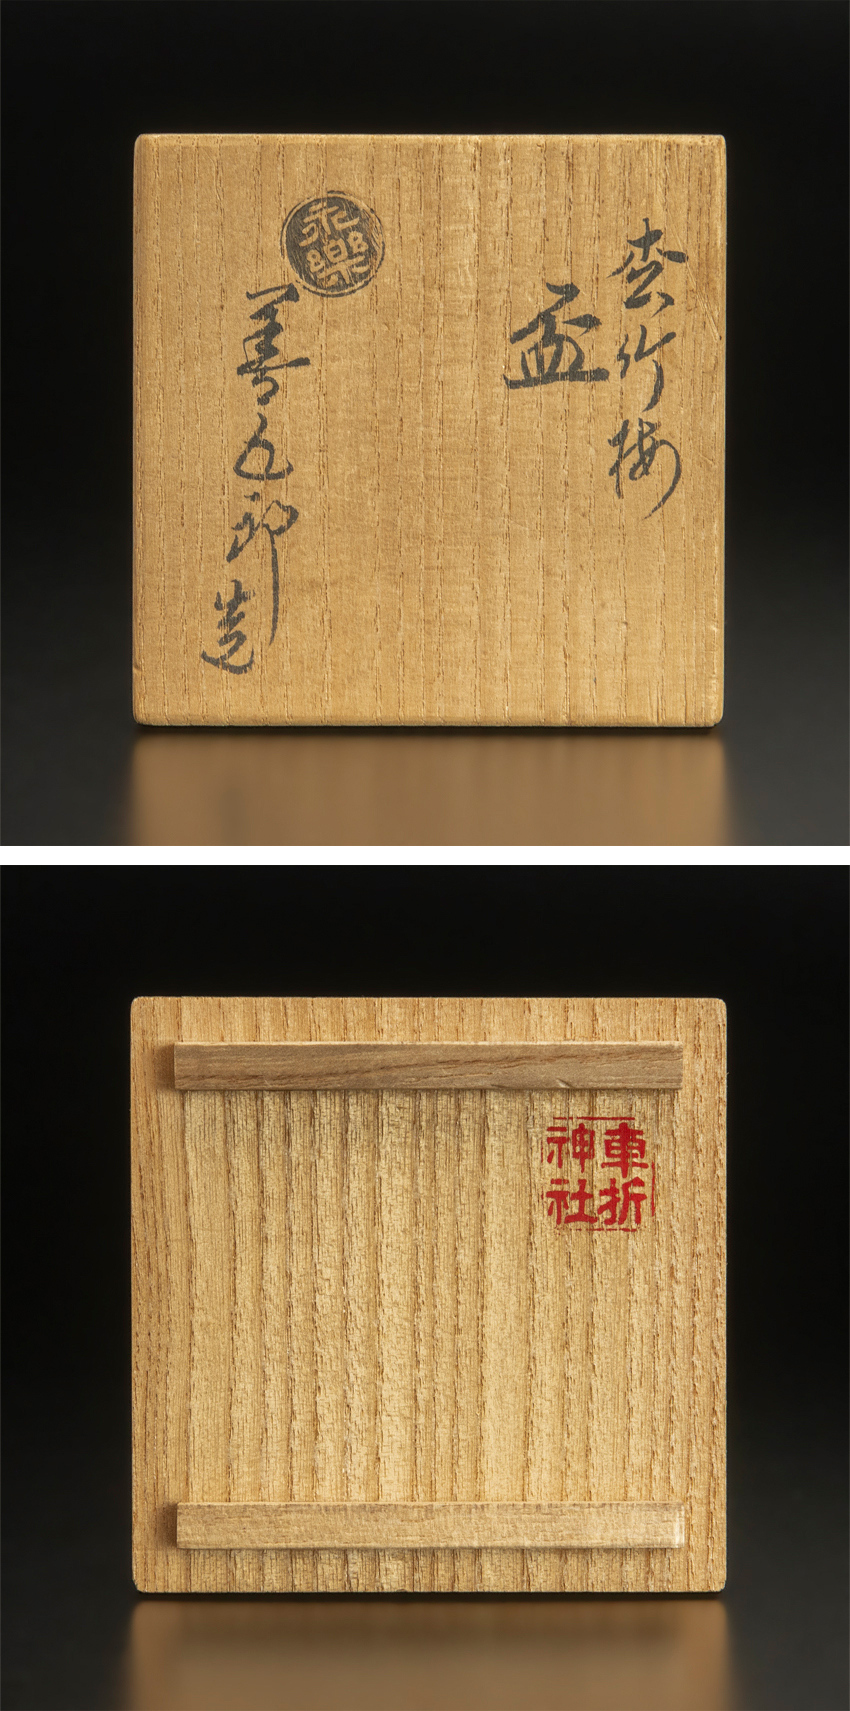 松竹梅
盃
永樂
善五郎造
車折
神社